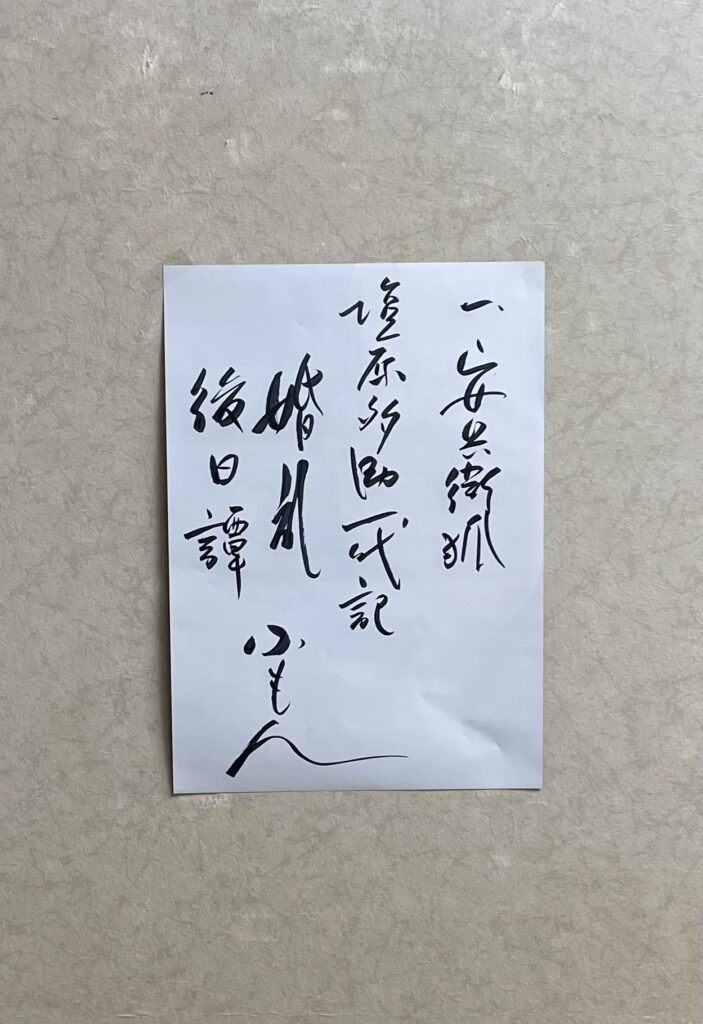 一、安兵衛狐
塩原多助一代記
婚礼
後日譚
小もん